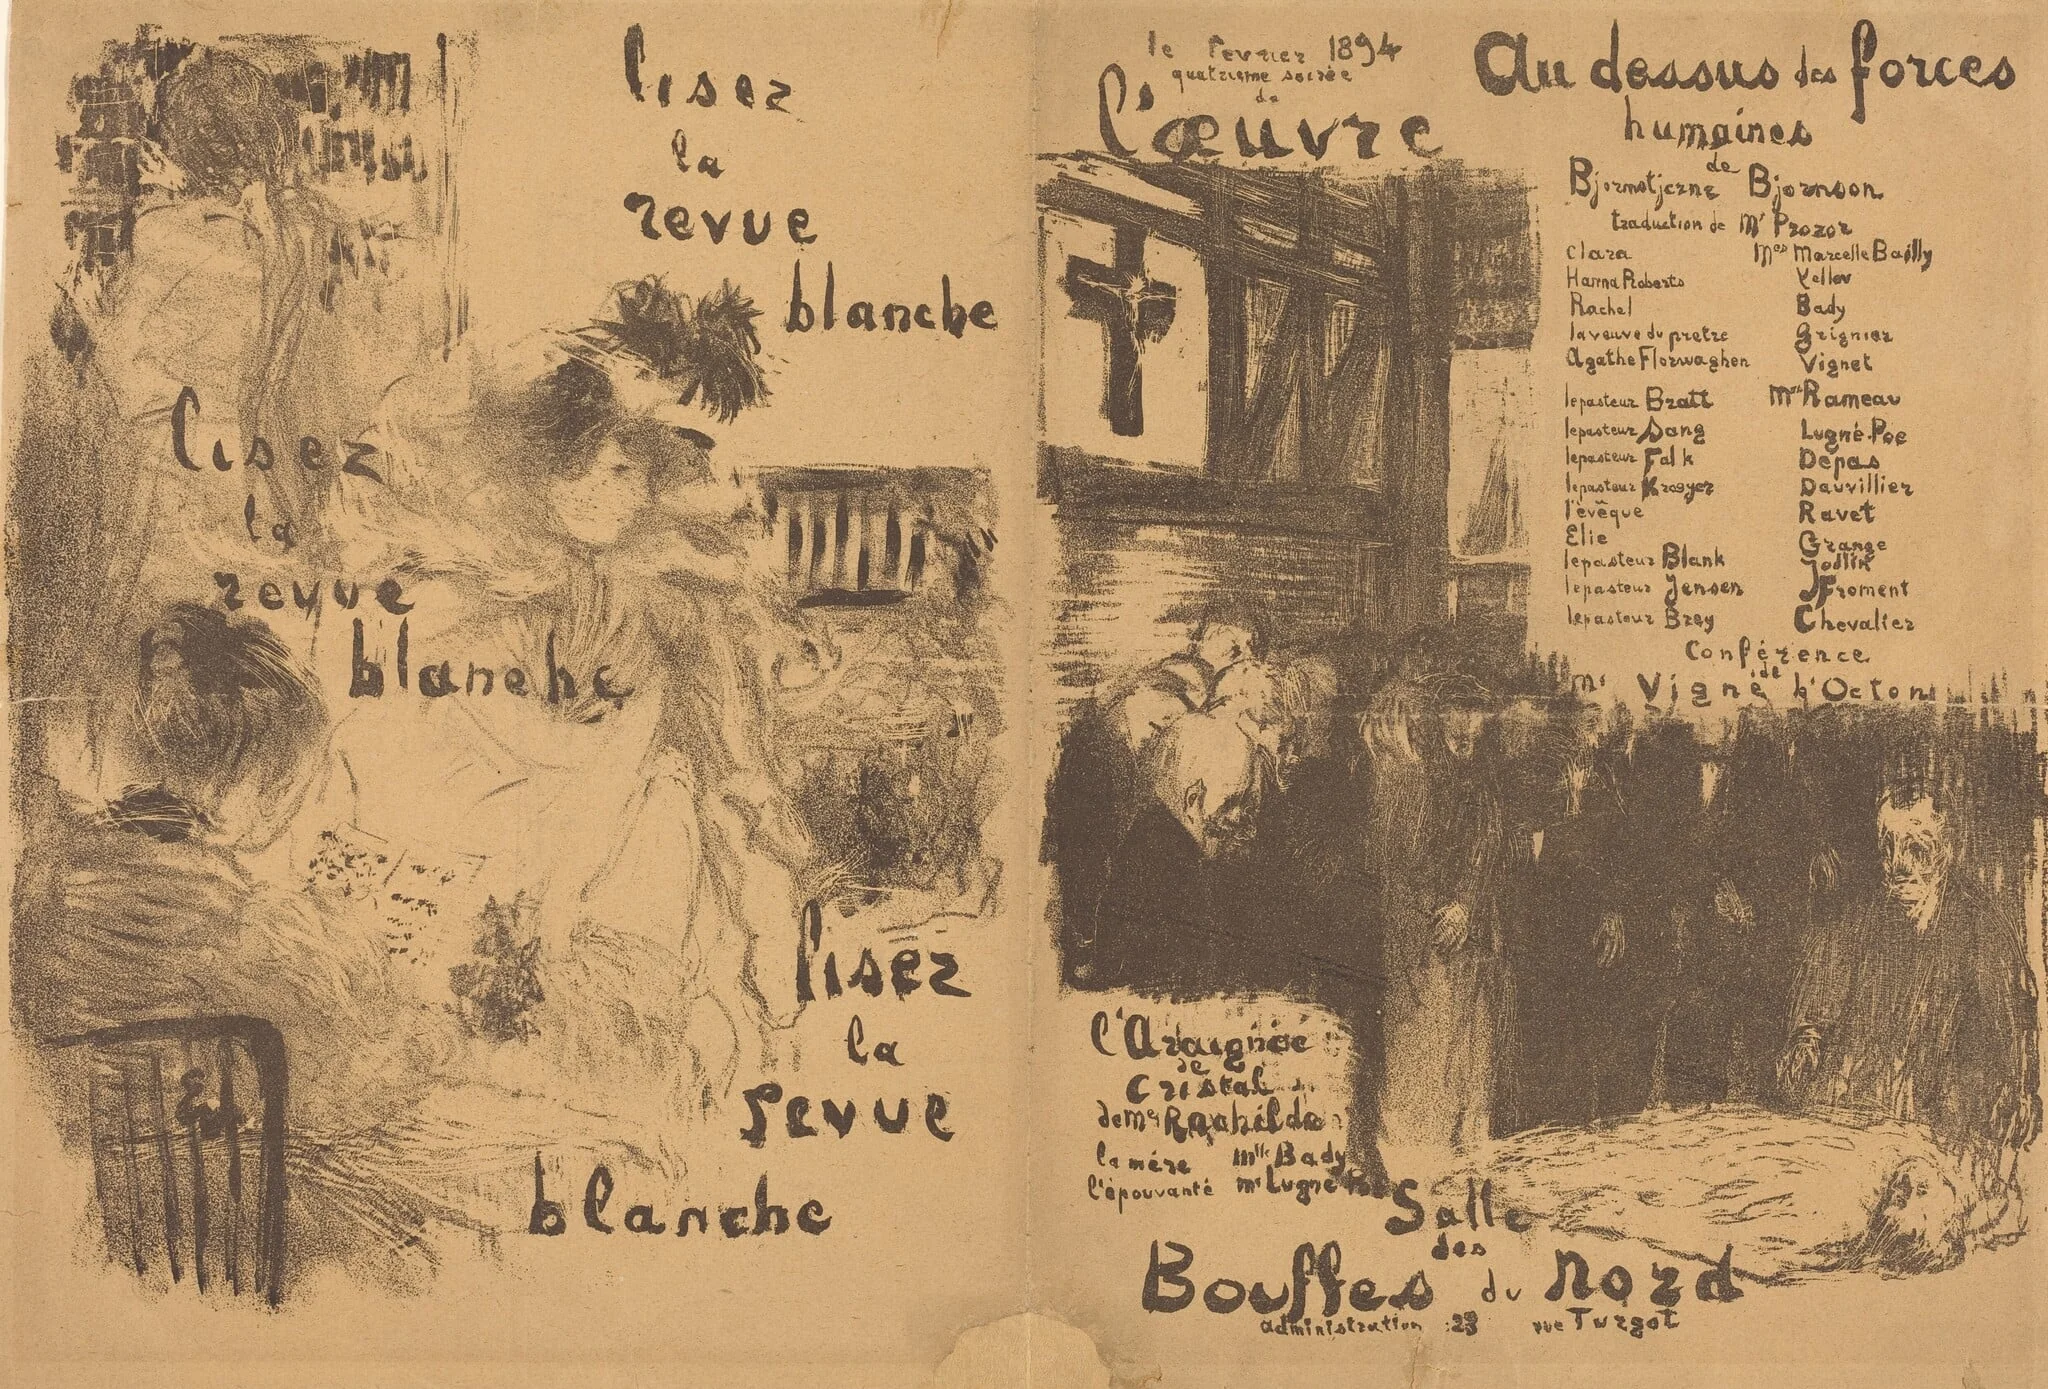 lisez
la
revue
blanche
lisez
la
revue
blanche
lisez
la
revue
blanche
le fevrier 1894
quatrieme soirée
de
l'œuvre
Au dessus des forces
humaines
de
Bjornstjerne Bjornson
traduction de Mr Prozor
Clara Mes Marcelle Bailly
Hanna Roberts Yellov
Rachel Bady
la veuve du pretre Grignier
Agathe Florwaghen Vignet
le pasteur Bratt Mrs Rameau
le pasteur Sang Lugné Poe
le pasteur Falk Depas
le pasteur Krogyer Dauvillier
l'évêque Ravet
Elie Grange
le pasteur Blank
le pasteur Jensen Froment
le pasteur Brey Chevalier
Conférence
de
Mr Vigné d'Octon
l'Araignée
de
Cristal
de Me Rachilde
la mére Mlle Bady
l'épouvanté Mr Lugné Poe
Salle
des
Bouffes du Nord
administration 23 rue Turgot